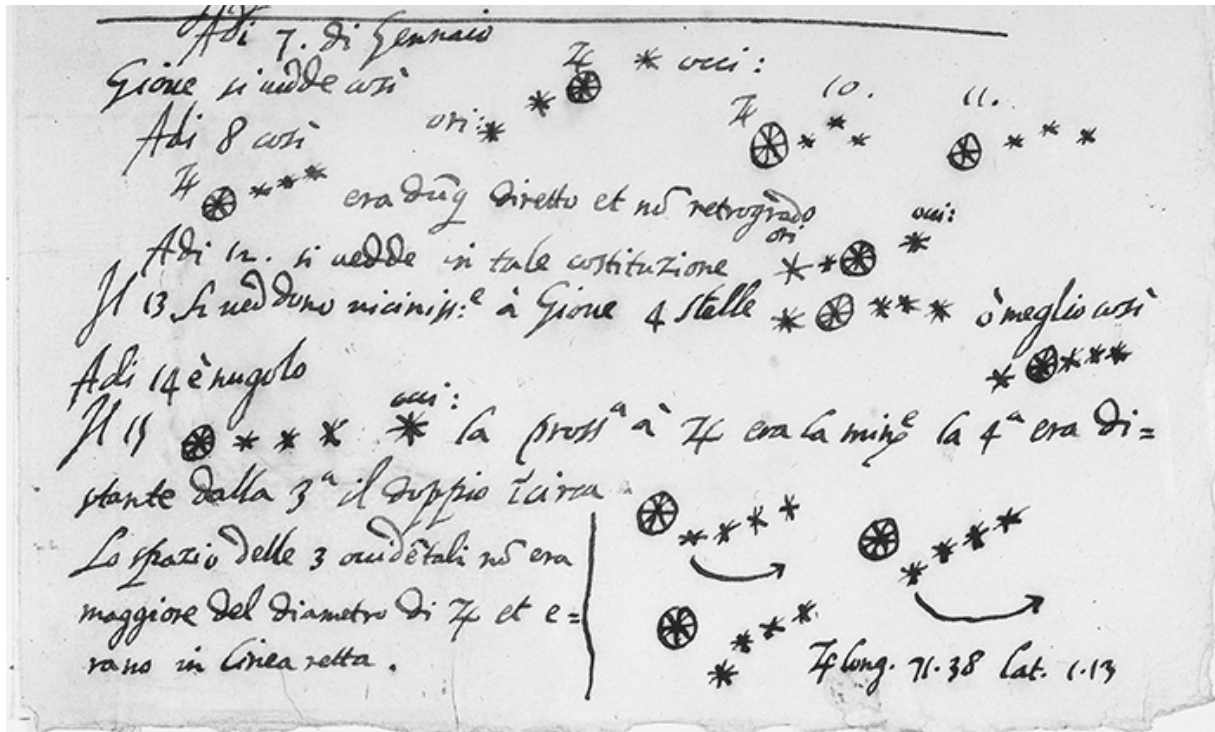 Adi 7. di Gennaio
Gioue si uedde così
♃ occi:
ori:
Adi 8 così
♃ 10. 11.
♃ era dūq diretto et nō retrogrado
Adi 12. si uedde in tale costituzione ori occi:
Il 13 si ueddono uiciniss:e à Gioue 4 stelle ò meglio così
Adi 14 è nugolo
Il 15 occi: la prossa à ♃ era la mine la 4a era di=
stante dalla 3a il doppio ī circa
Lo spazio delle 3 occidētali nō era
maggiore del diametro di ♃ et e=
rano in linea retta.
♃ long. 71.38 lat. 1.13